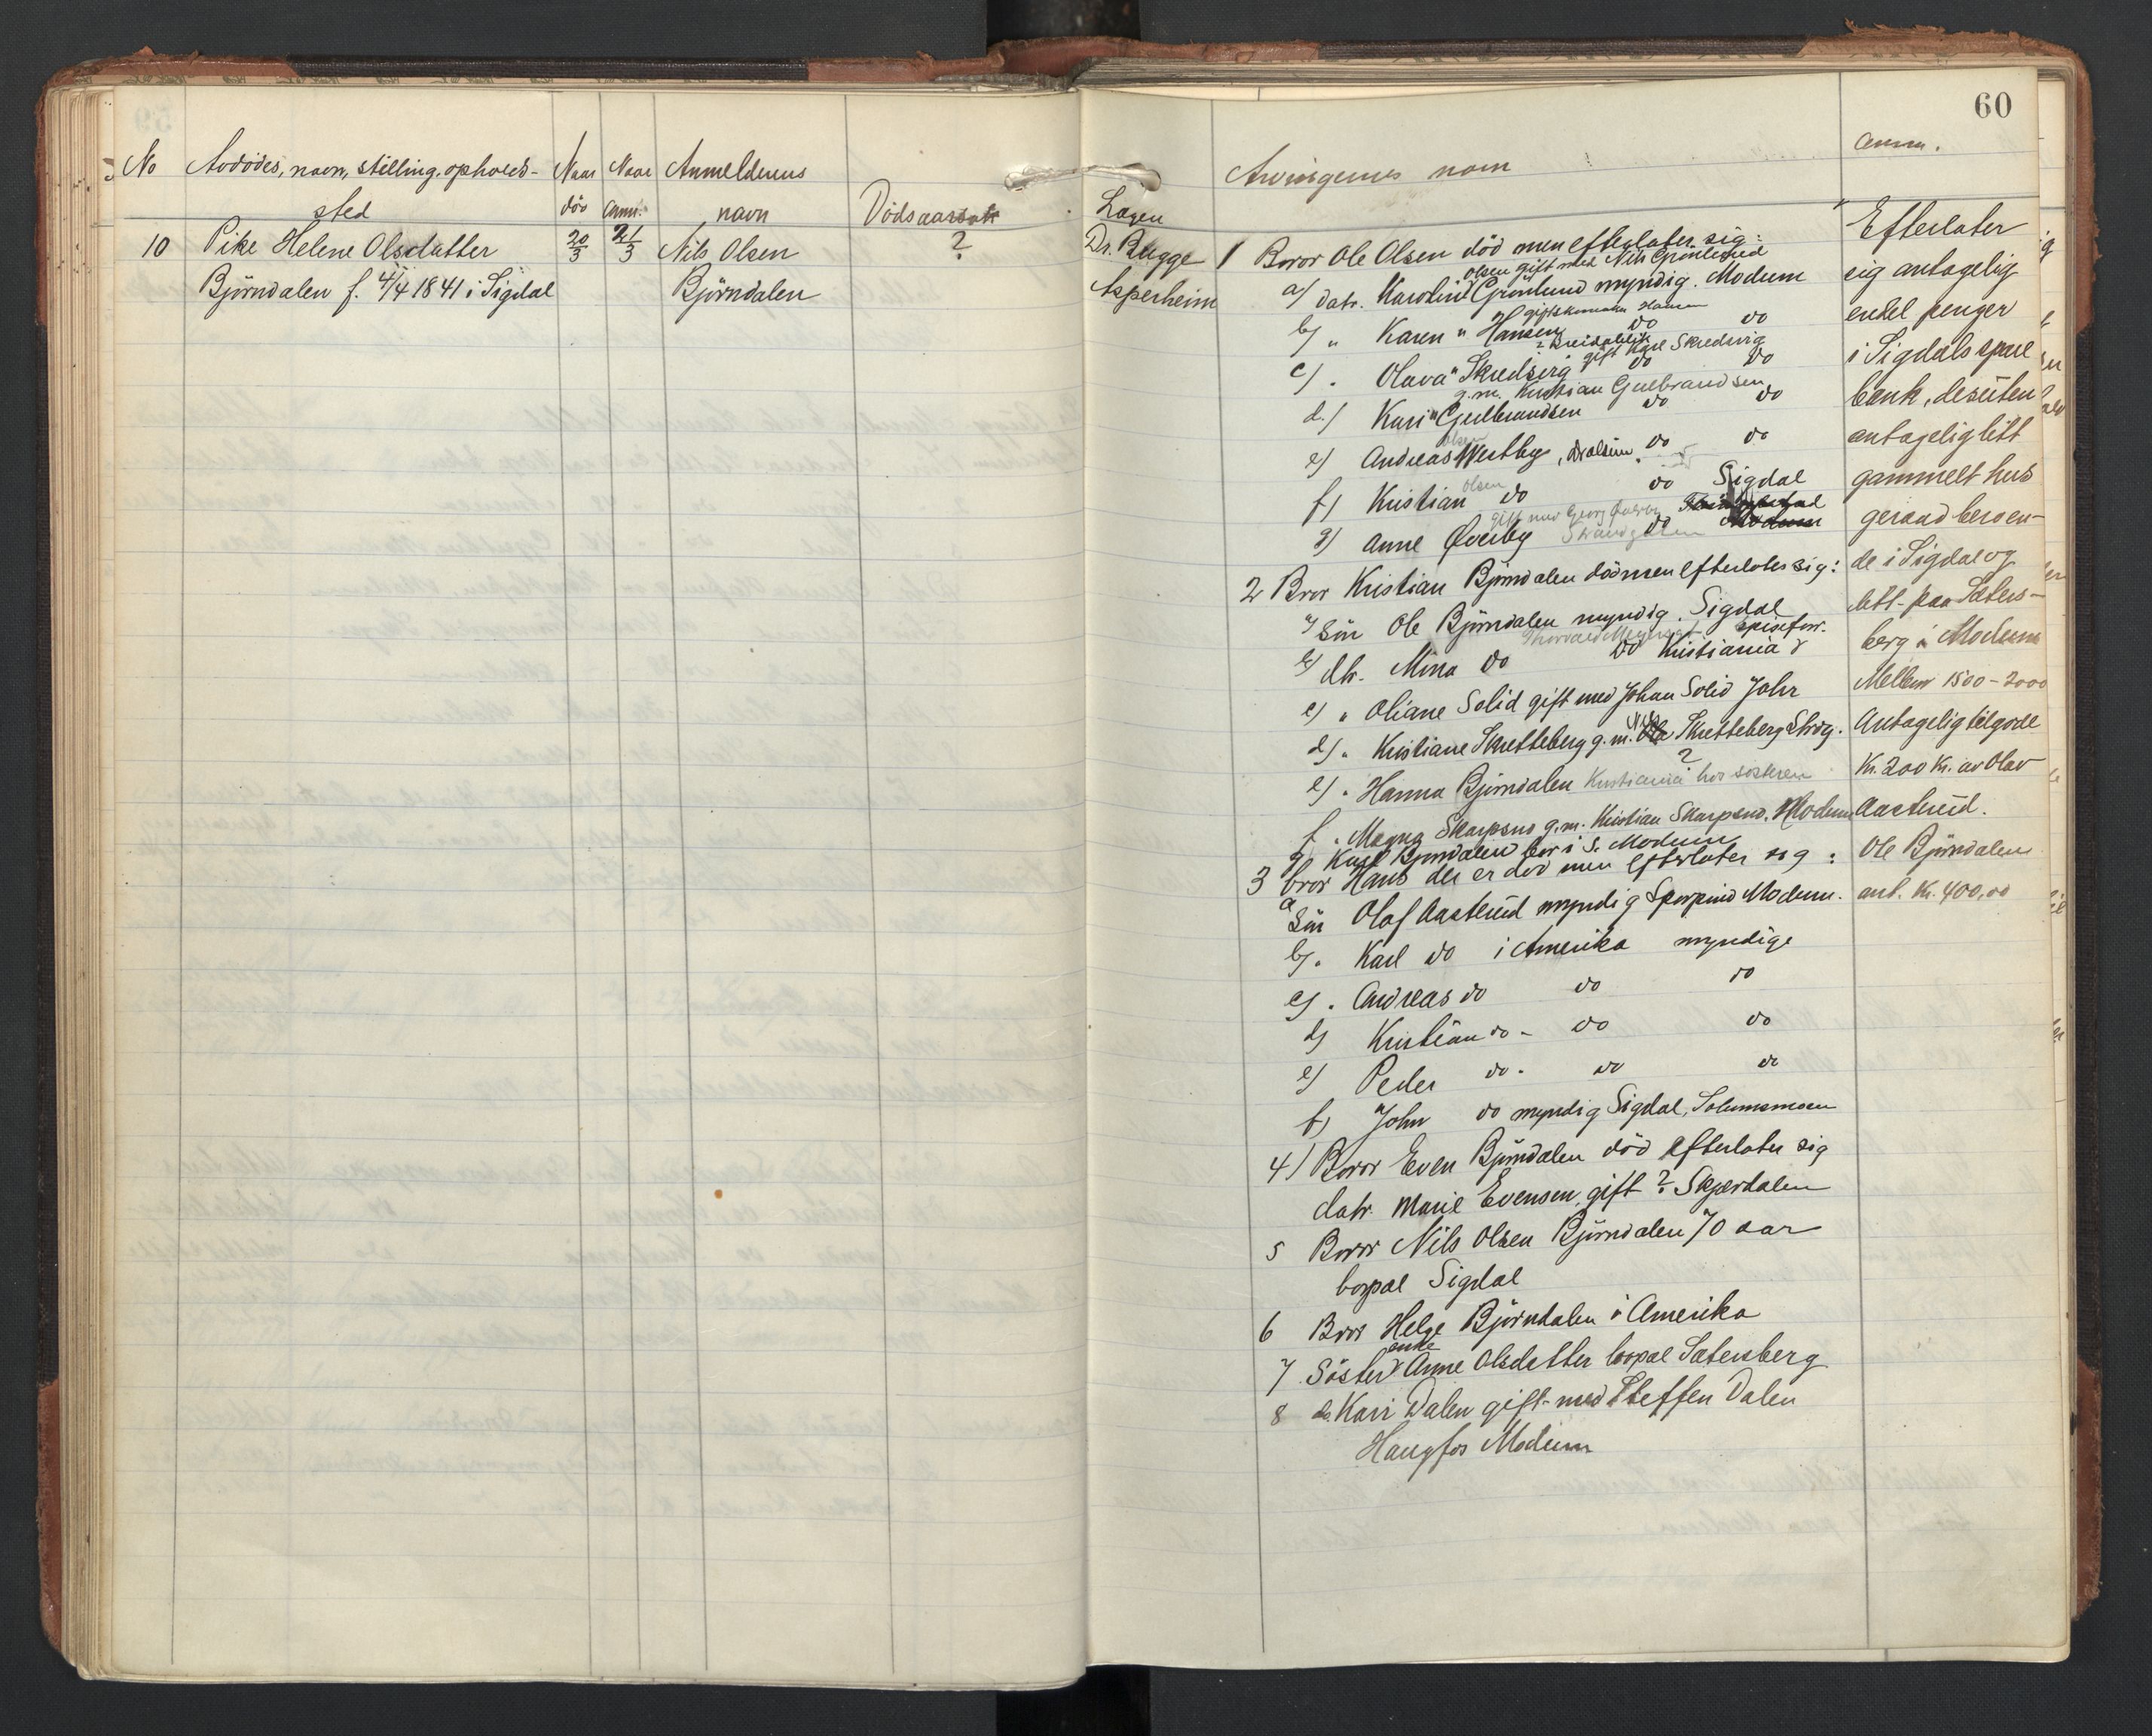 60
No Avdödes, navn, stilling, opholds-
sted
Naar
död
Naar
anm.
Anmelderens
navn
Dödsaarsak
Lægen
Arvingernes navn
anm.
10 Pike Helene Olsdatter
Björndalen f. 4/4 1841 i Sigdal
20/3
21/3
Nils Olsen
Björndalen
?
Dr. Bugge
Asperheim
1 Bror Ole Olsen död men efterlater sig:
Olsen gift med Nils Grönlund
a) datr. Karoline Grönlund myndig. Modum
b) " Karen " Hansen do do
gift Karl Skredsvig
c) " Olava " Skredsvig do do
g.m. Kristian Gulbrandsen
d) Kari " Gulbrandsen do do
olsen
e) Andreas Westby, do do
olsen
f) Kristian do do Sigdal
gift med Georg Øverby
g) Anne Øverby do Modum
2 Bror Kristian Björndalen död men efterlater sig:
a) Sön Ole Björndalen myndig. Sigdal
b) dtr. Mina do do Kristiania
c) " Oliane Solid gift med Johan Solid Johr
d) " Kristiane Skretteberg g.m. Nils Skretteberg
?
e) " Hanna Björndalen Kristiania hos sösteren
f " Magna Skarpsno g.m. Kristian Skarpsno, Modum
g Karl Björndalen bor i S. Modum
3 bror Hans der er död men efterlater sig:
a Sön Olaf Aasterud myndig Modum.
b) " Karl do i Amerika myndige
c) " Andreas do do do
d) Kristian do - do do
e) Peder do - do do
f) John do myndig Sigdal, Solumsmoen
4) Bror Even Björndalen död efterlater sig
datr. Marie Evensen, gift ? Skjærdalen
5 Bror Nils Olsen Björndalen 70 aar
bopæl Sigdal
6 Bror Helge Björndalen i Amerika
enke
7 Söster Anne Olsdatter bopæl Satersberg
8 do. Kari Dalen gift med Steffen Dalen
Haugfos Modum
Efterlater
sig antagelig
endel penger
i Sigdals spare
bank, desuten
antagelig litt
gammelt hus
geraad beroen-
de i Sigdal og
litt paa Saters-
berg i Modum
Mellem 1500-2000
Antagelig tilgode
Kr. 200 Kr. av Olav
Aasterud.
Ole Björndalen
ant. Kr. 400,00